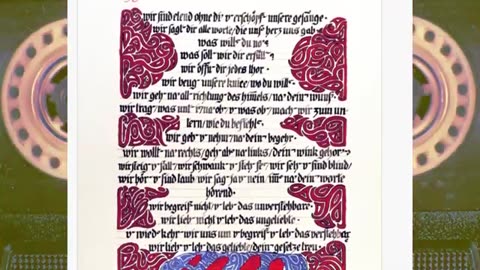 wir sind elend ohne dir v erschöpf' unsere gesänge·
wir sagt' dir alle worte/die uns' herz uns gab·
was will' du no'·
was soll' wir dir erfüll'·
wir öffn' dir jedes thor·
wir beug' unsere kniee/wo du will'·
wir geh' na' all' richtung' des himels/na' dein' wuns'·
wir trag' was unt' na' ob' v was ob' mach' wir zum un
tern/wie du befiehl'·
wir geb' v nehm' na' dein' begehr·
wir wollt' na' rechts/geh' ab' na' links/dein' wink gehor'
v fall'/wir schwank' v seh' v sind blind/
wir hör' v sind taub wir sag' ja v nein dein' worte
hörend·
wir begreif' nicht v leb' das unverstehbare·
wir lieb' nicht v leb' das ungeliebte·
kehr' wir uns um v begreif' v leb' das verstehbar
wir lieb' v leb' das geliebte/dein' gesetze treu·